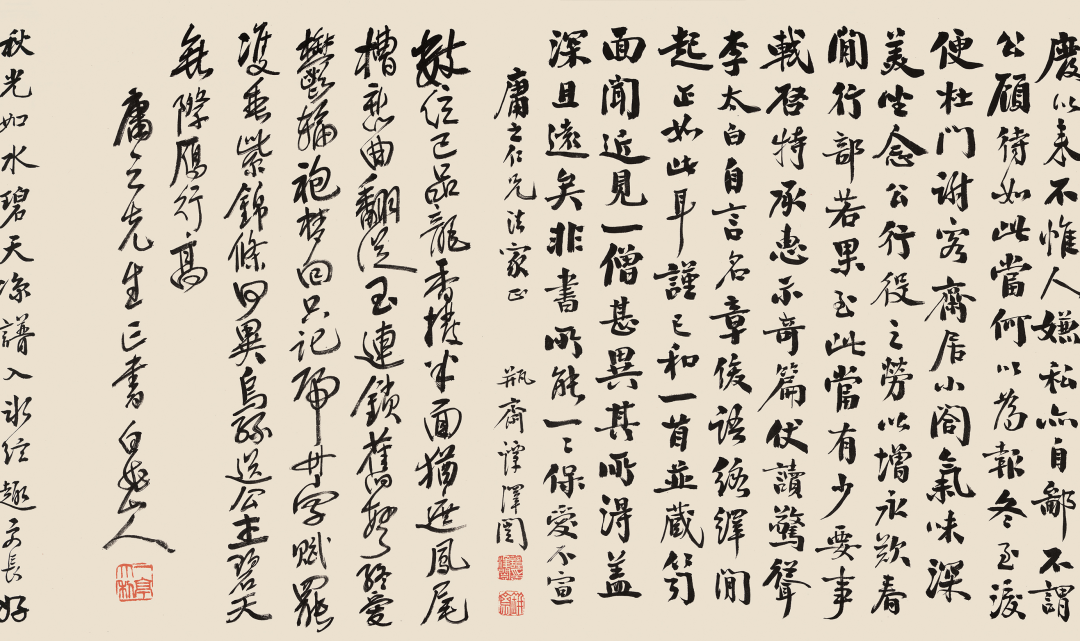 慶以来不惟人嫌私亦自鄙不謂
公顧待如此當何以為報冬至後
便杜门謝客齋居小閤氣味深
美坐念公行役之勞以增永歎春
閒行部若果至此當有少要事
載啓特承惠示奇篇伏讀驚聳
李太白自言名章俊語絡繹閒
起正如此耳謹已和一首並蔵笥
面聞近見一僧甚異其所得盖
深且遠矣非書所能一二保愛不宣
庸之仁兄法家正
瓶齋譚澤闓
數弦已品龍香撥半面猶遮鳳尾
槽新曲翻從玉連鎖舊聲終愛
鬱輪袍夢回只記歸舟字賦罷
雙垂紫錦絛何異烏孫送公主碧天
無際鴈行高
庸之先生正書白龍山人
秋光如水碧天凉譜入冰弦趣更長好